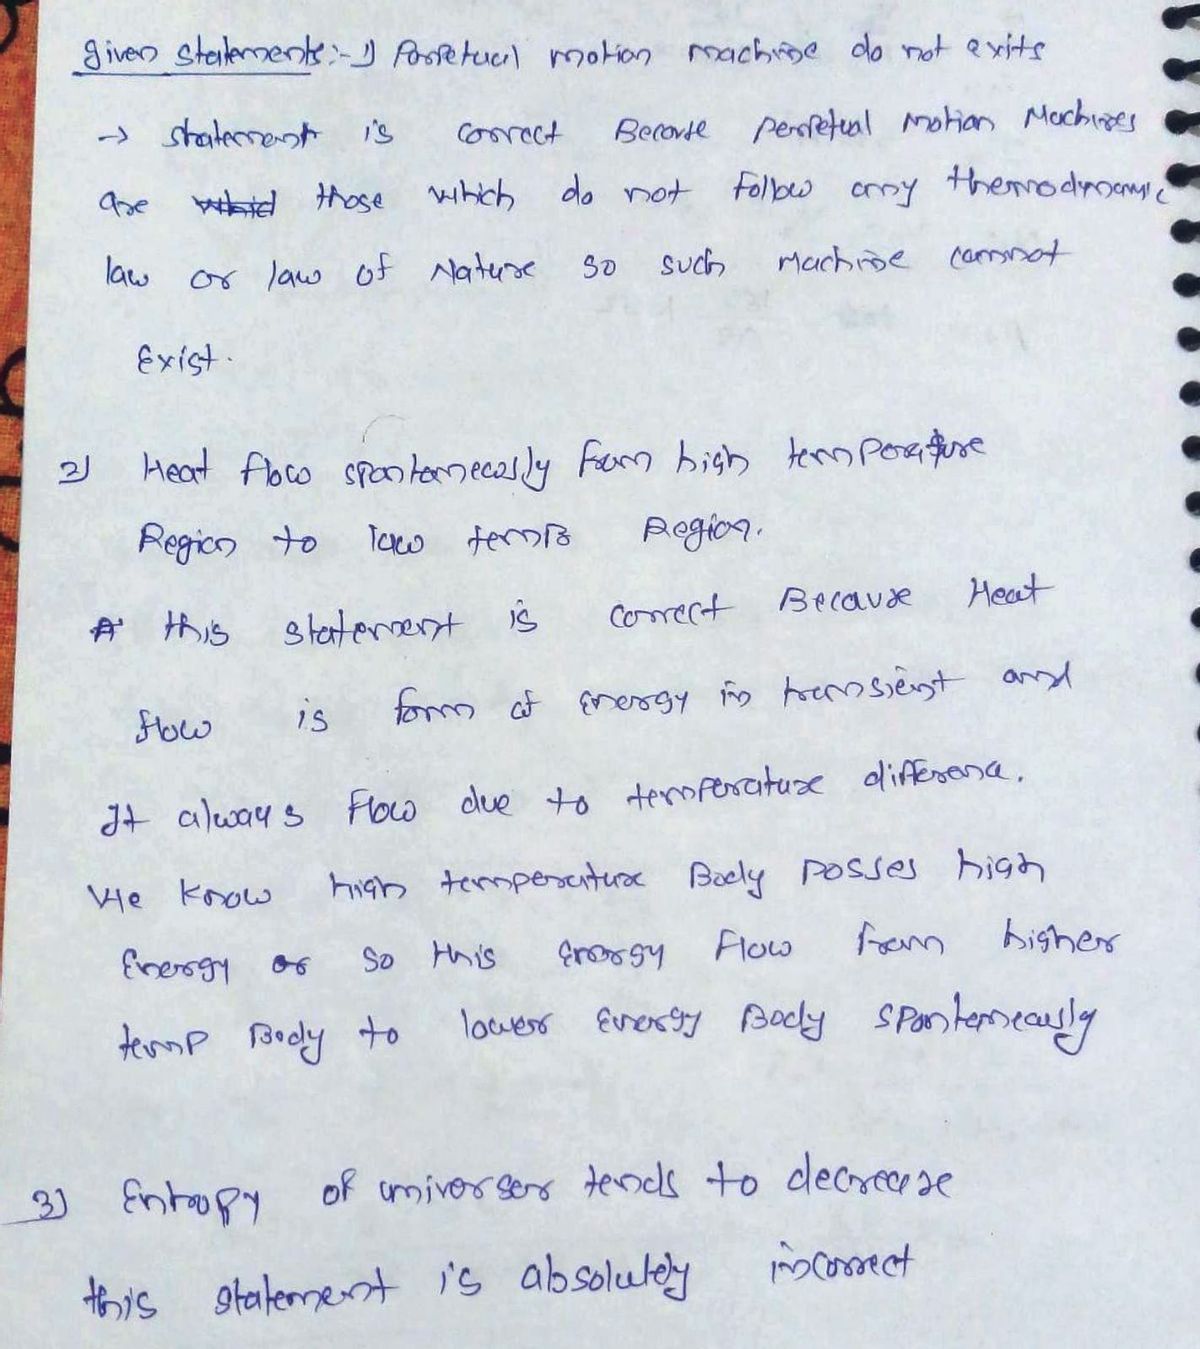 Given statements:- 1) Perpetual motion machine do not exits
→ statement is correct Because perpetual motion Machines
are those which do not follow any thermodynamic
law or law of Nature so such machine cannot
Exist.
2) Heat flow spontaneously from high temperature
Region to low temp Region.
this statement is correct Because Heat
flow is form of energy in transient and
It always Flow due to temperature difference.
We know high temperature Body posses high
Energy so this Energy Flow from higher
temp Body to lower Energy Body spontaneously
3) Entropy of universer tends to decrease
this statement is absolutely incorrect